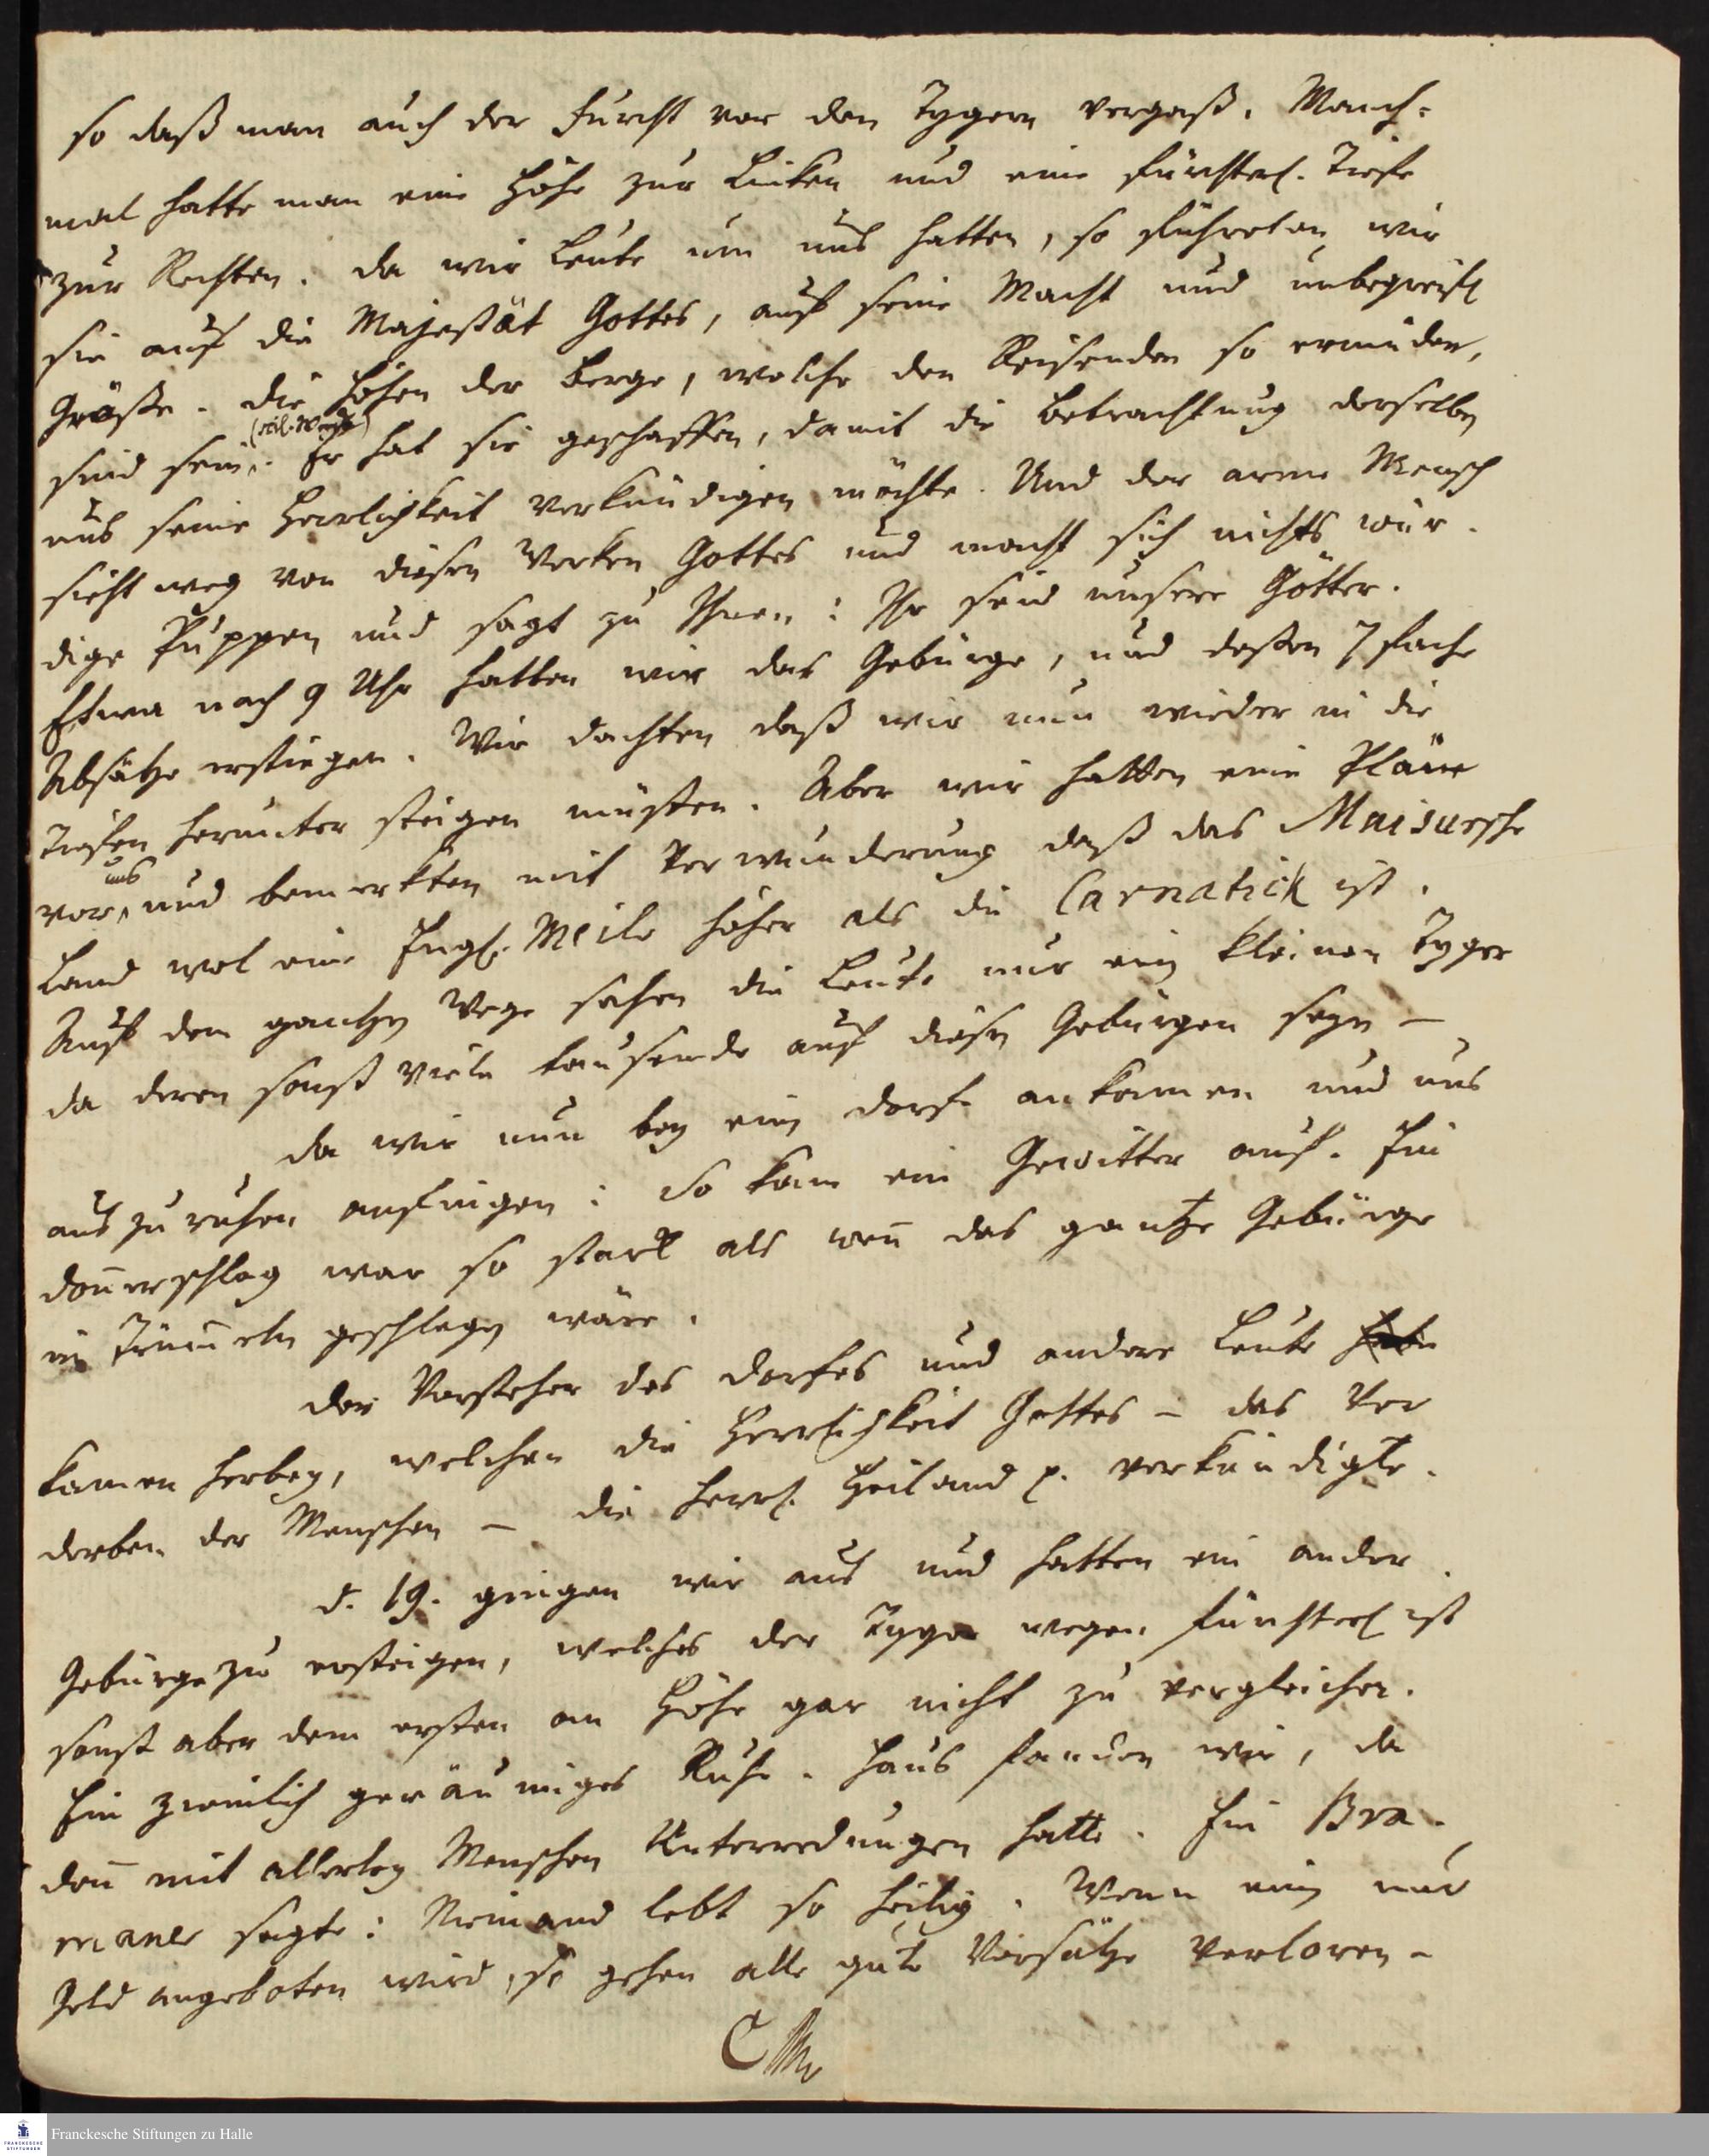 so daß man auch der Furcht vor den Tygern vergaß. Manch-
mal hatte man eine Höhe zur Lincken und eine fürchterl. Tiefe
zur Rechten. Da wir Leute um uns hatten, so führeten wir
sie auf die Majestät Gottes, auf seine Macht und unbegreifl
Größe. Die Höhen der Berge, welche den Reisenden so ermüden,
sind sein. Er hat sie geschaffen, damit die Betrachtung derselben
uns seine Herrlichkeit verkündigen möchte. Und der arme Mensch
sieht weg von diesen Werken Gottes und macht sich nichts wür-
dige Puppen und sagt zu Ihnen: Ihr seid unsere Götter.
Etwa nach 9 Uhr hatten wir das Gebürge, und deßen 7 fache
Absätze erstiegen. Wir dachten daß wir nun wieder in die
Tiefen herunter steigen müsten. Aber wir hatten eine Pläne
vor uns und bemerkten mit Verwunderung daß das Maisursche
Land wol eine Engl. Meile höher als die Carnatick ist.
Auf dem gantzen Wege sahen die Leute nur ein kleinen Tyger
da deren sonst viele tausende auf diesen Gebürgen seyn –
Da wir nun bey ein Dorfe ankamen und uns
aus zu ruhen anfingen: So kam ein Gewitter auf. Ein
Donnerschlag war so stark als wenn das gantze Gebürge
in Trümmern geschlagen wäre.
Der Vorsteher des Dorfes und andere Leute
kamen herbey, welchen die Herrlichkeit Gottes – das Ver
derben der Menschen – die herrl. Heiland p. verkündigte.
d. 19. gingen wir aus und hatten ein ander
Gebürge zu ersteigen, welches der Tyger wegen fürchterl ist
sonst aber dem ersten an Höhe gar nicht zu vergleichen.
Ein ziemlich geräumiges Ruhe-Haus fanden wir, da
denn mit allerley Menschen Unterredungen hatte. Ein Bra-
maner sagte: Niemand lebt so heilig. Wenn ein nur
Geld angeboten wird, so gehen alle gute Vorsätze verloren –
Franckesche Stiftungen zu Halle
FRANCKESCHE
STIFTUNGEN